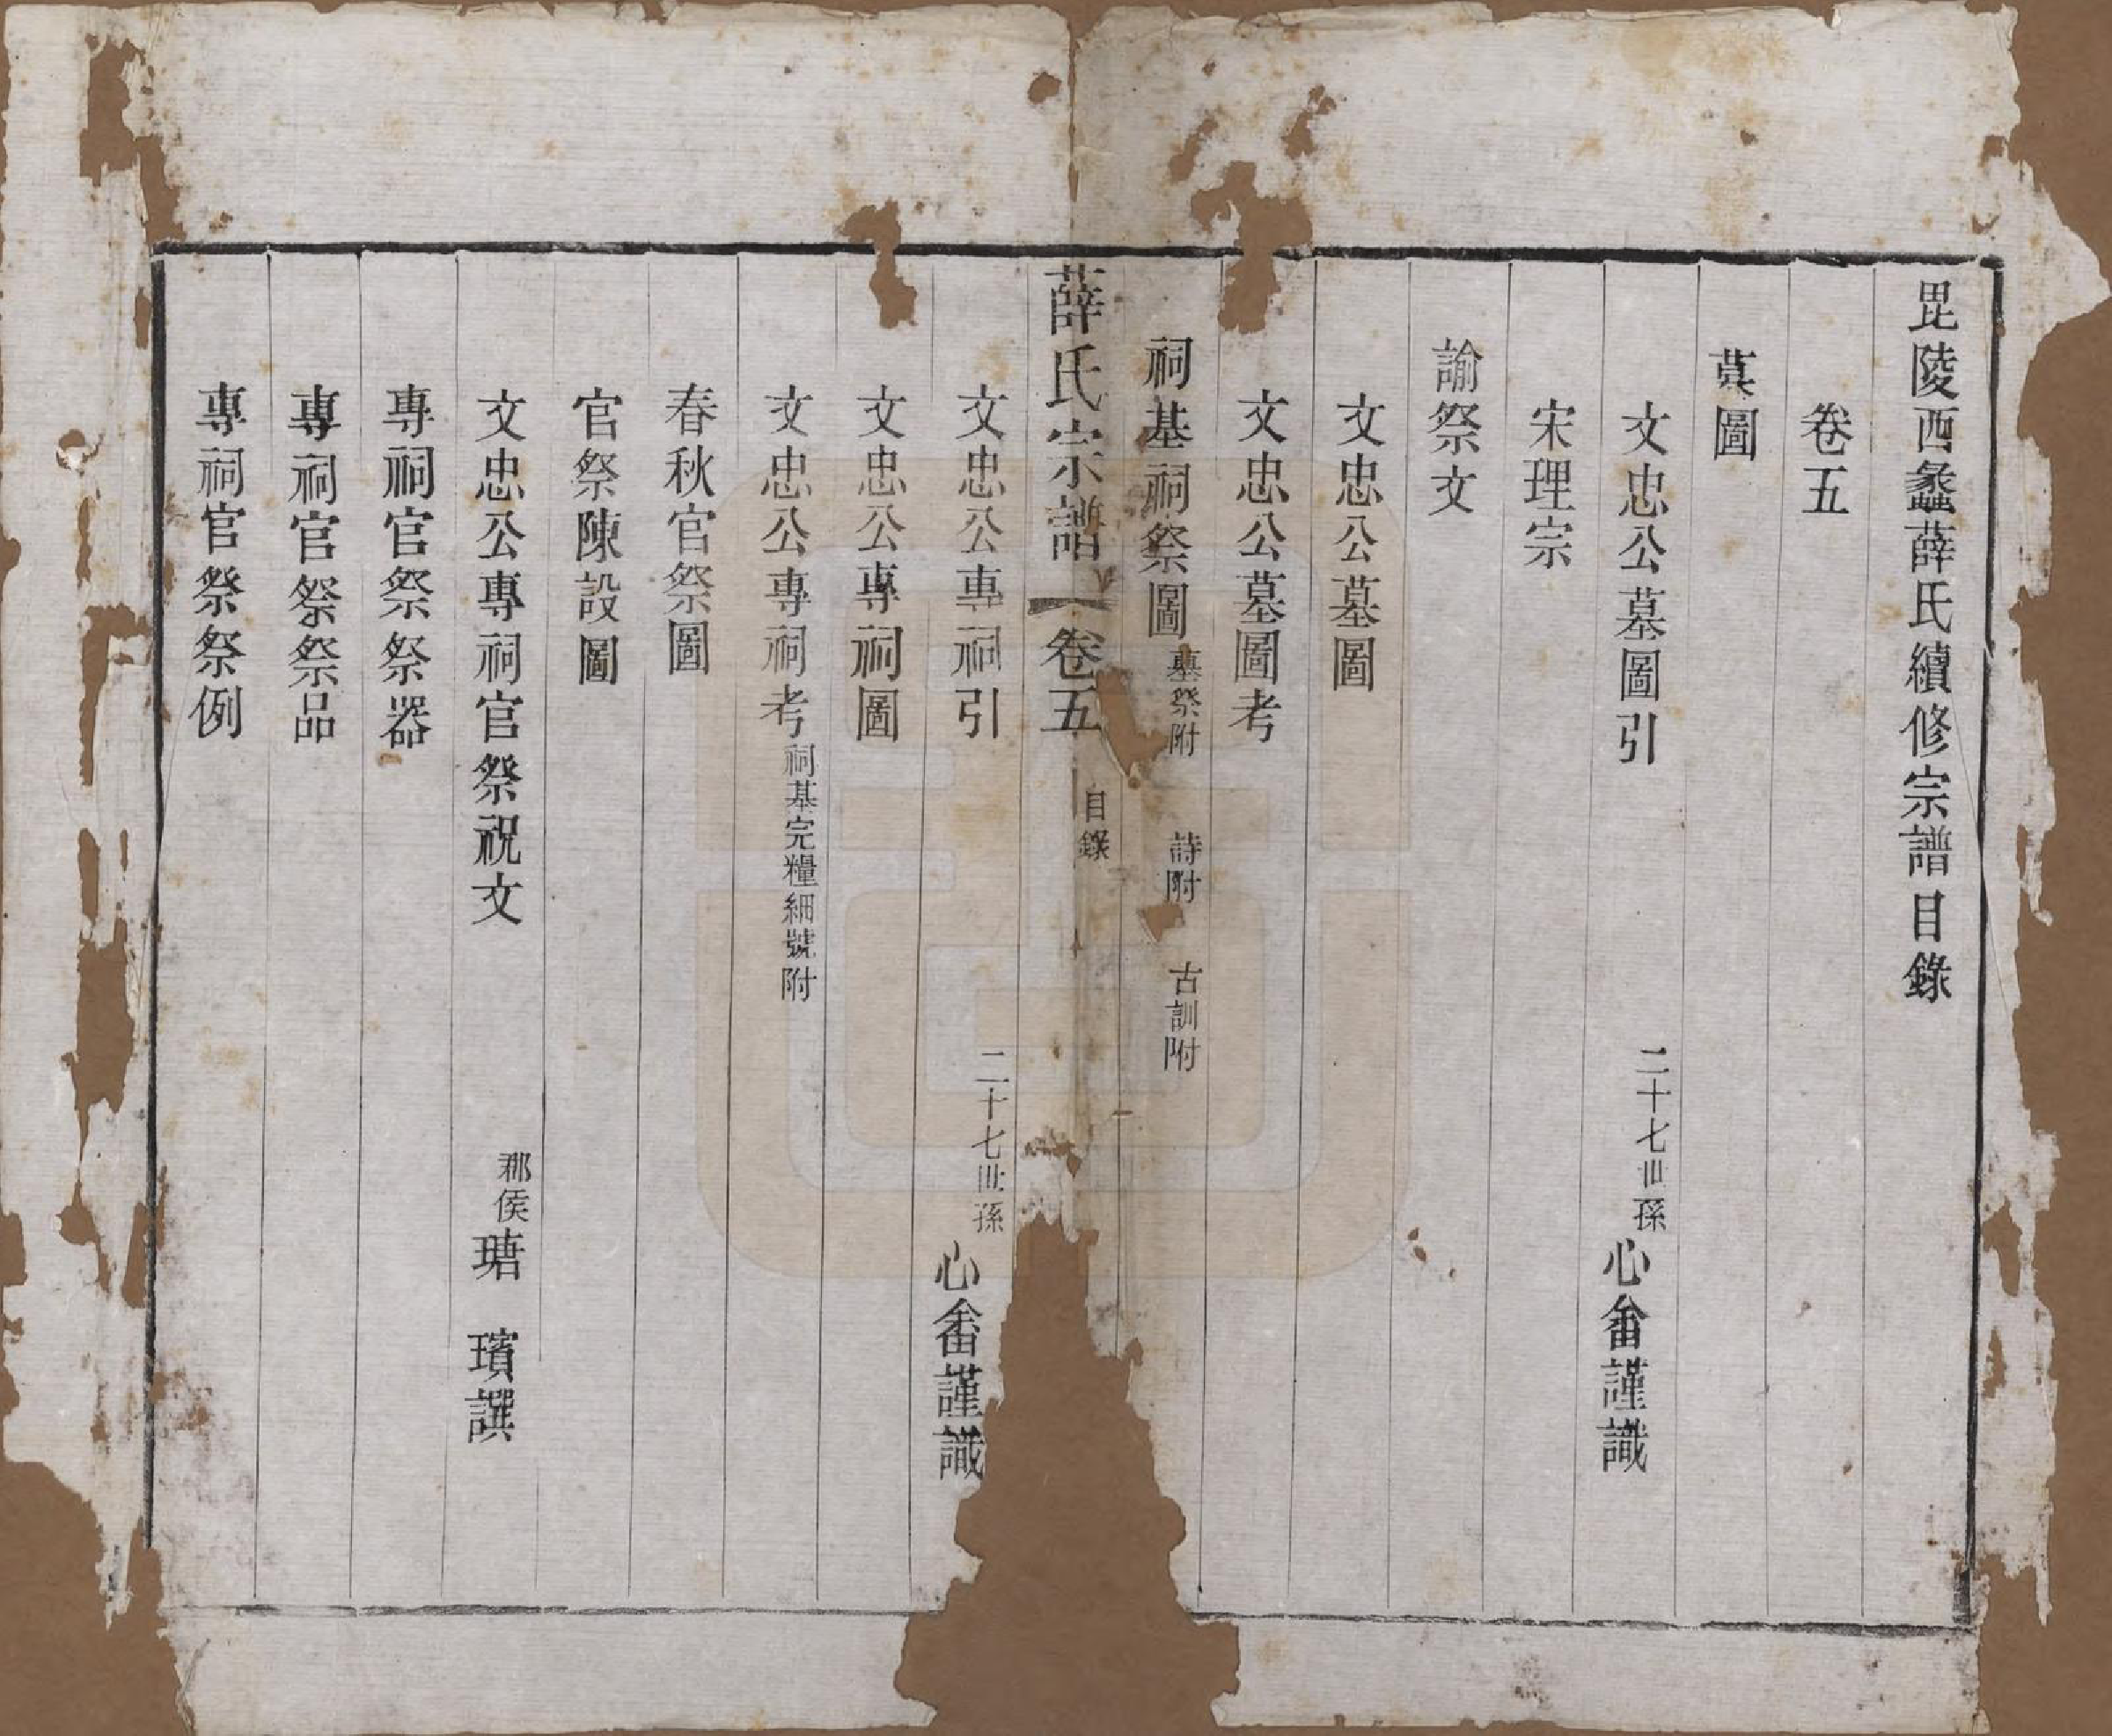 毘陵西蠡薛氏續修宗譜目錄
卷五
墓圖
文忠公墓圖引 二十七世孫心畬謹識
宋理宗
諭祭文
文忠公墓圖
文忠公墓圖考
祠基祠祭圖 墓祭附 詩附 古訓附
薛氏宗譜 卷五 目錄 一
文忠公專祠引 二十七世孫心畬謹識
文忠公專祠圖
文忠公專祠考 祠基完糧細號附
春秋官祭圖
官祭陳設圖
文忠公專祠官祭祝文 郡侯瑭 璸譔
專祠官祭祭器
專祠官祭祭品
專祠官祭祭例